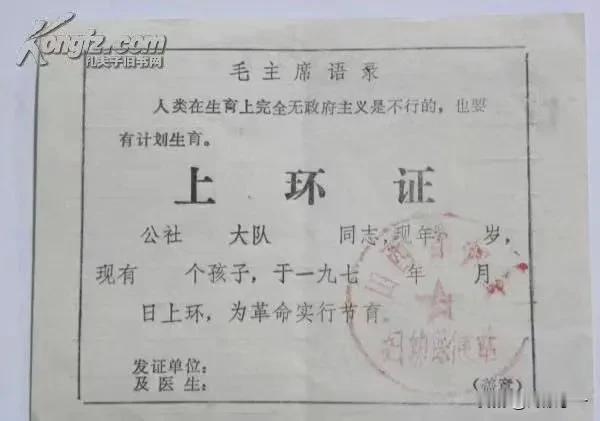 Kongfz.com
孔夫子旧书网
毛主席语录
人类在生育上完全无政府主义是不行的，也要
有计划生育。
上环证
公社 大队 同志，现年 岁，
现有 个孩子，于一九七 年 月
日上环，为革命实行节育。
发证单位：
及医生： （盖章）